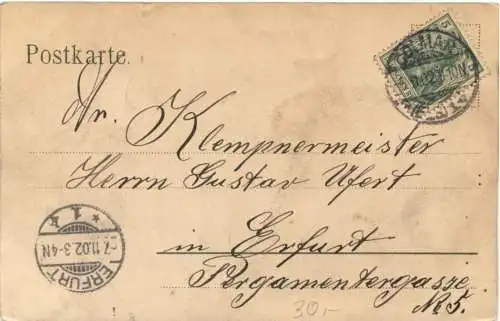 Postkarte.
WEIMAR
Klempnermeister
Herrn Gustav Ufert
in Erfurt
Pergamentergasse
№ 5.
* 1 k *
7.11.02.3-4N
ERFURT
30,-